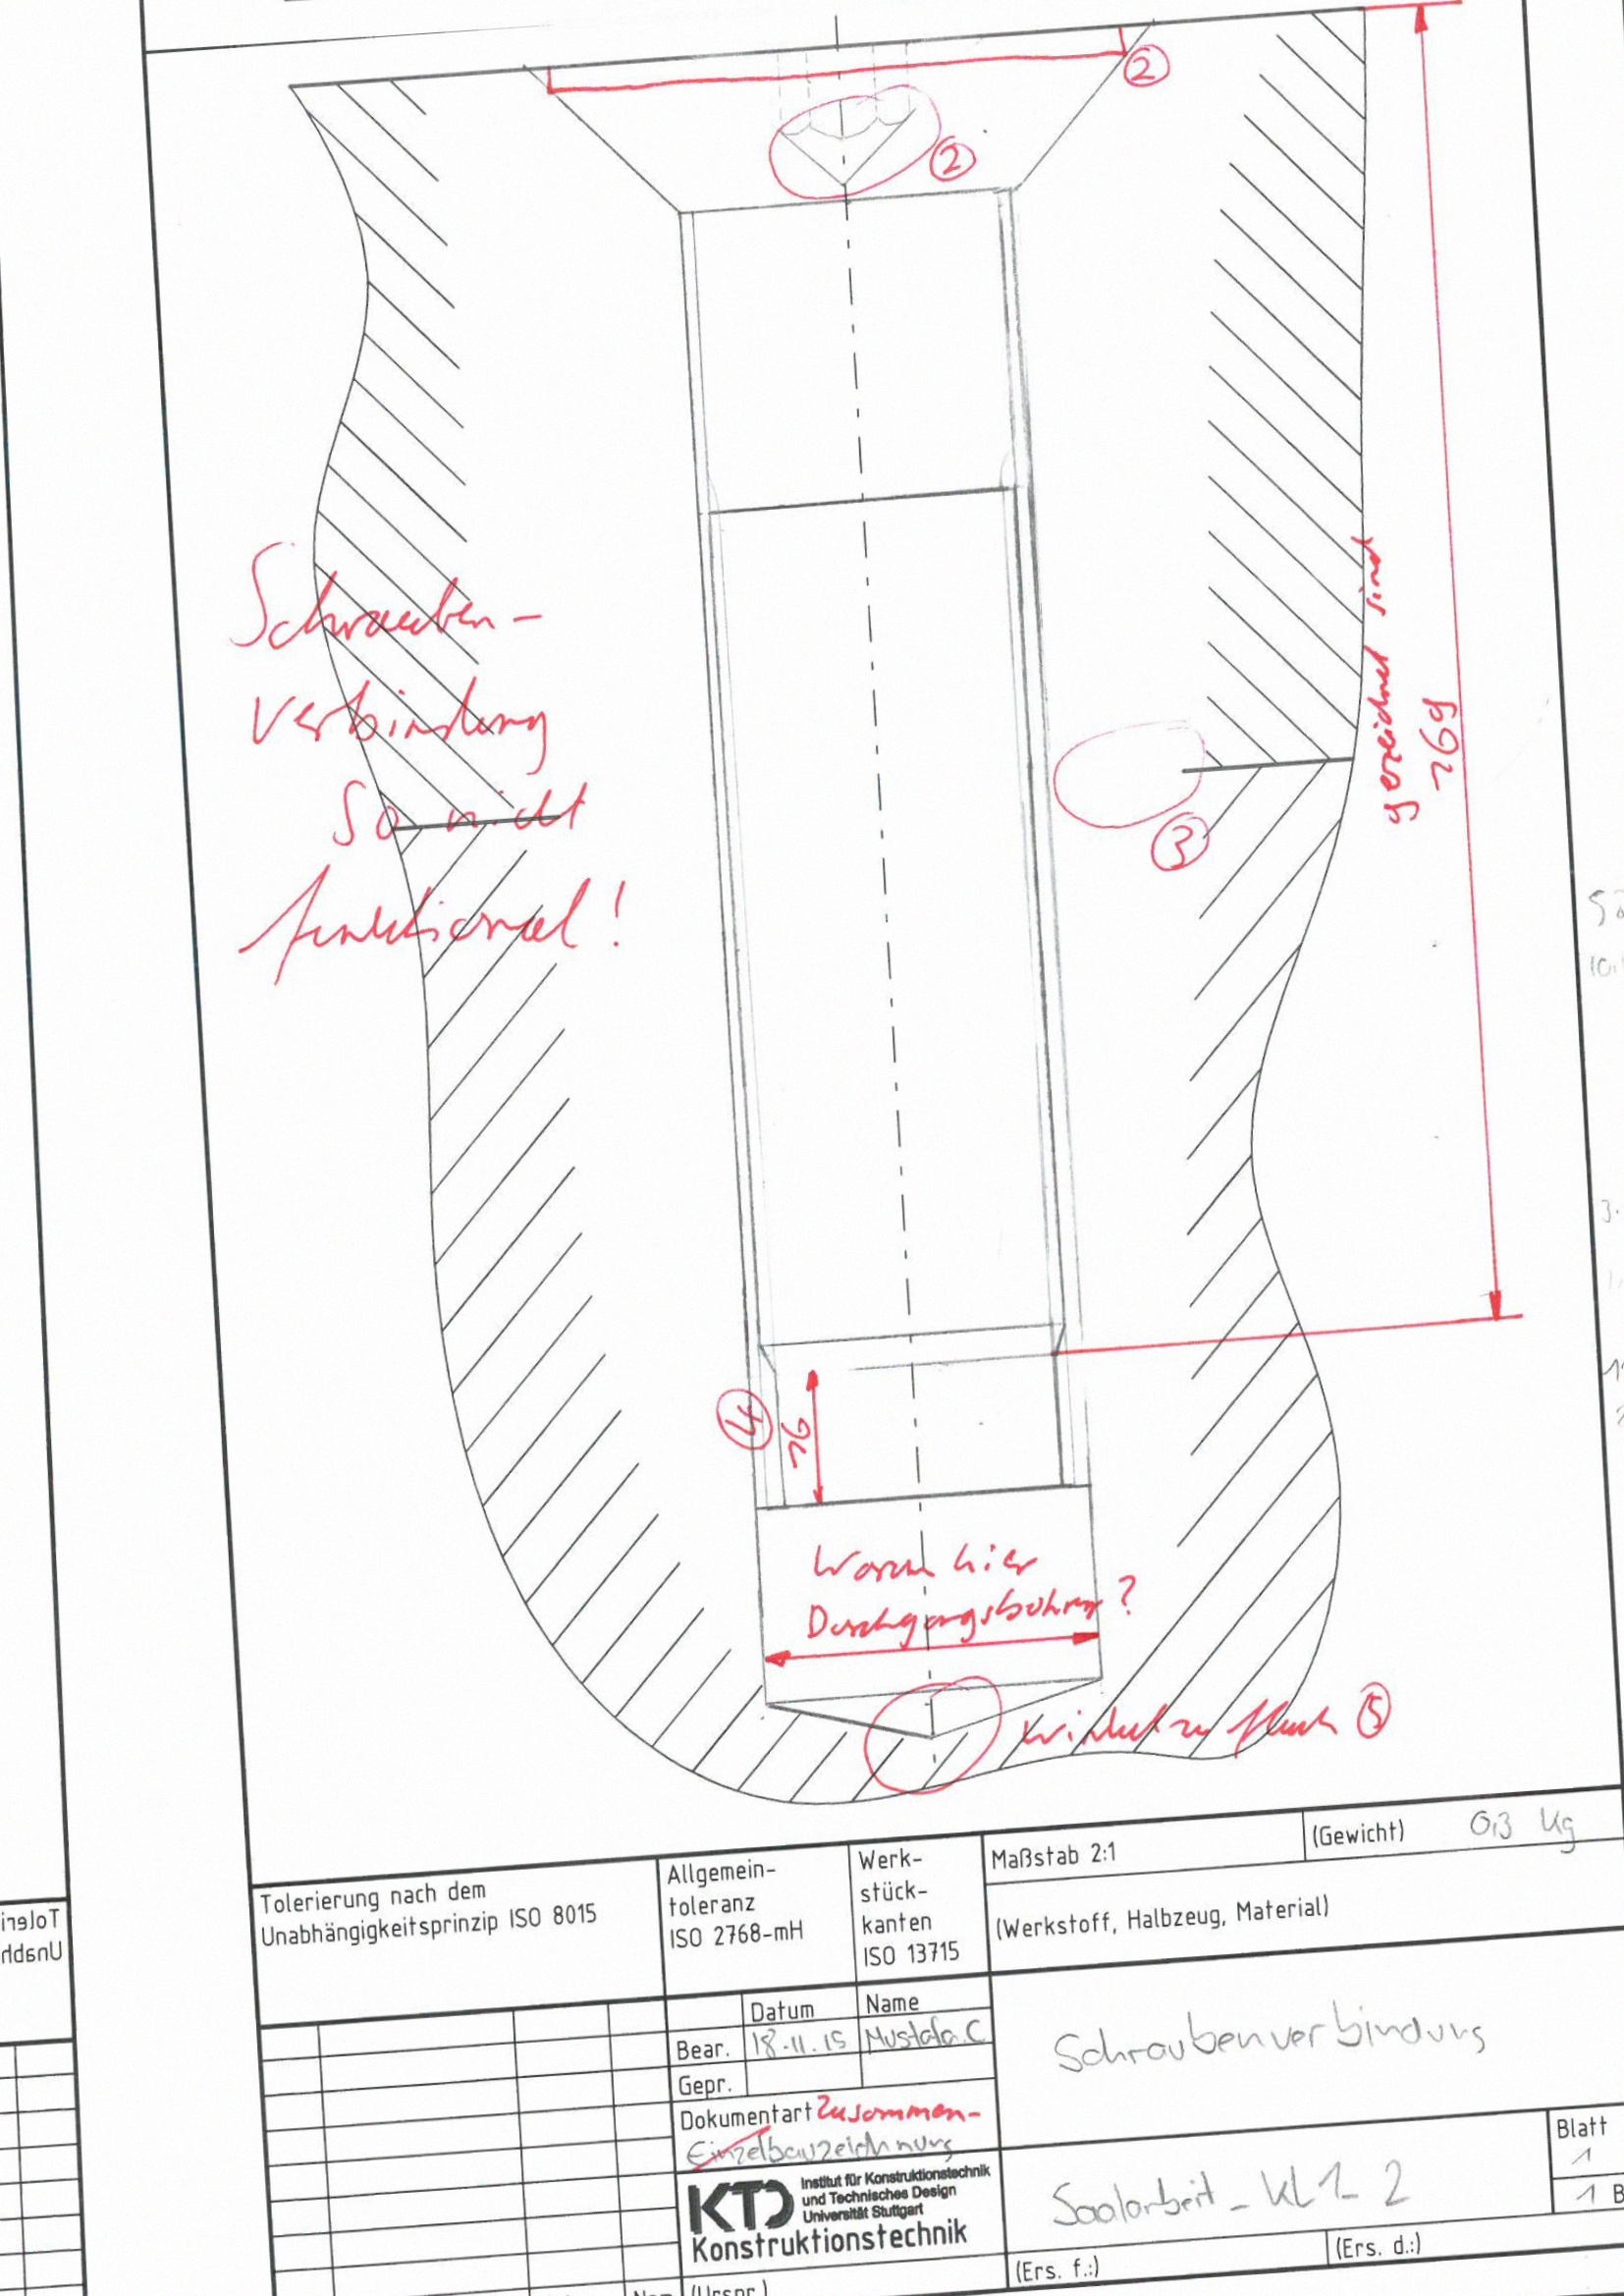 ②
②
Schrauben-
verbindung
so nicht
funktional!
gezeichnet sind
③
④
Warum hier
Durchgangsbohrung?
Winkel zu flach ⑤
Tolerierung nach dem
Unabhängigkeitsprinzip ISO 8015
Allgemein-
toleranz
ISO 2768-mH
Werk-
stück-
kanten
ISO 13715
Maßstab 2:1
(Gewicht) 0,3 kg
(Werkstoff, Halbzeug, Material)
Datum
Name
Bear. 18.11.15 Mustafa.C
Gepr.
Dokumentart Zusammen-
Einzelbauzeichnung
Schraubenverbindung
KTD
Institut für Konstruktionstechnik
und Technisches Design
Universität Stuttgart
Konstruktionstechnik
Saalarbeit_KL1_2
Blatt
1
1 B
(Ers. f.:)
(Ers. d.:)